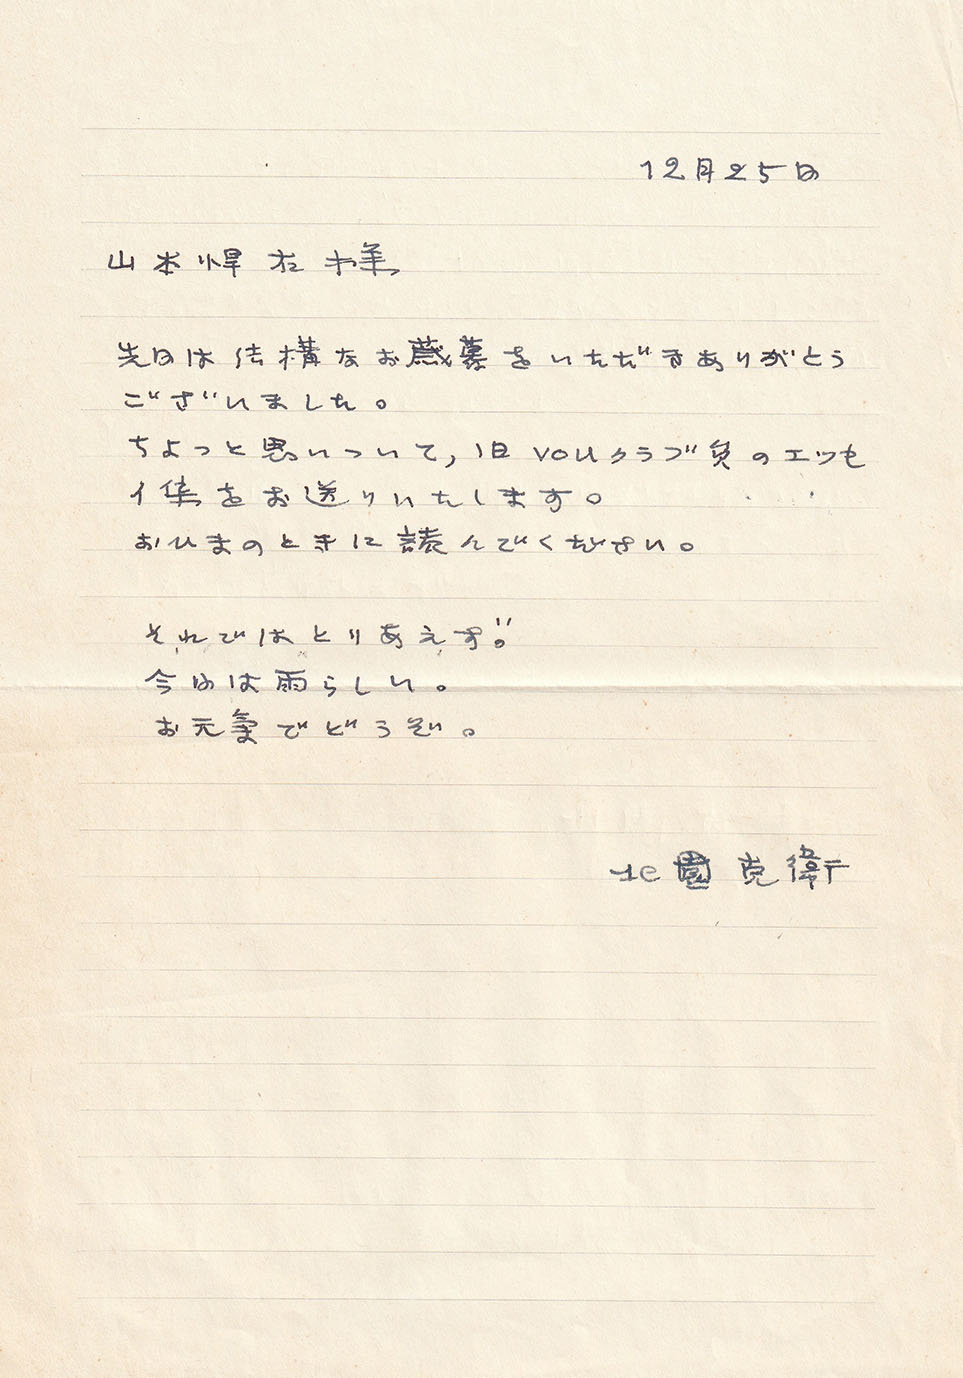 12月25日
山本悍右様
先日は結構なお歳暮をいただきありがとう
ございました。
ちょっと思いついて,旧VOUクラブ員のエッセ
イ集をお送りいたします。
おひまのときに読んでください。
それではとりあえず。
今日は雨らしい。
お元気でどうぞ。
北園克衛